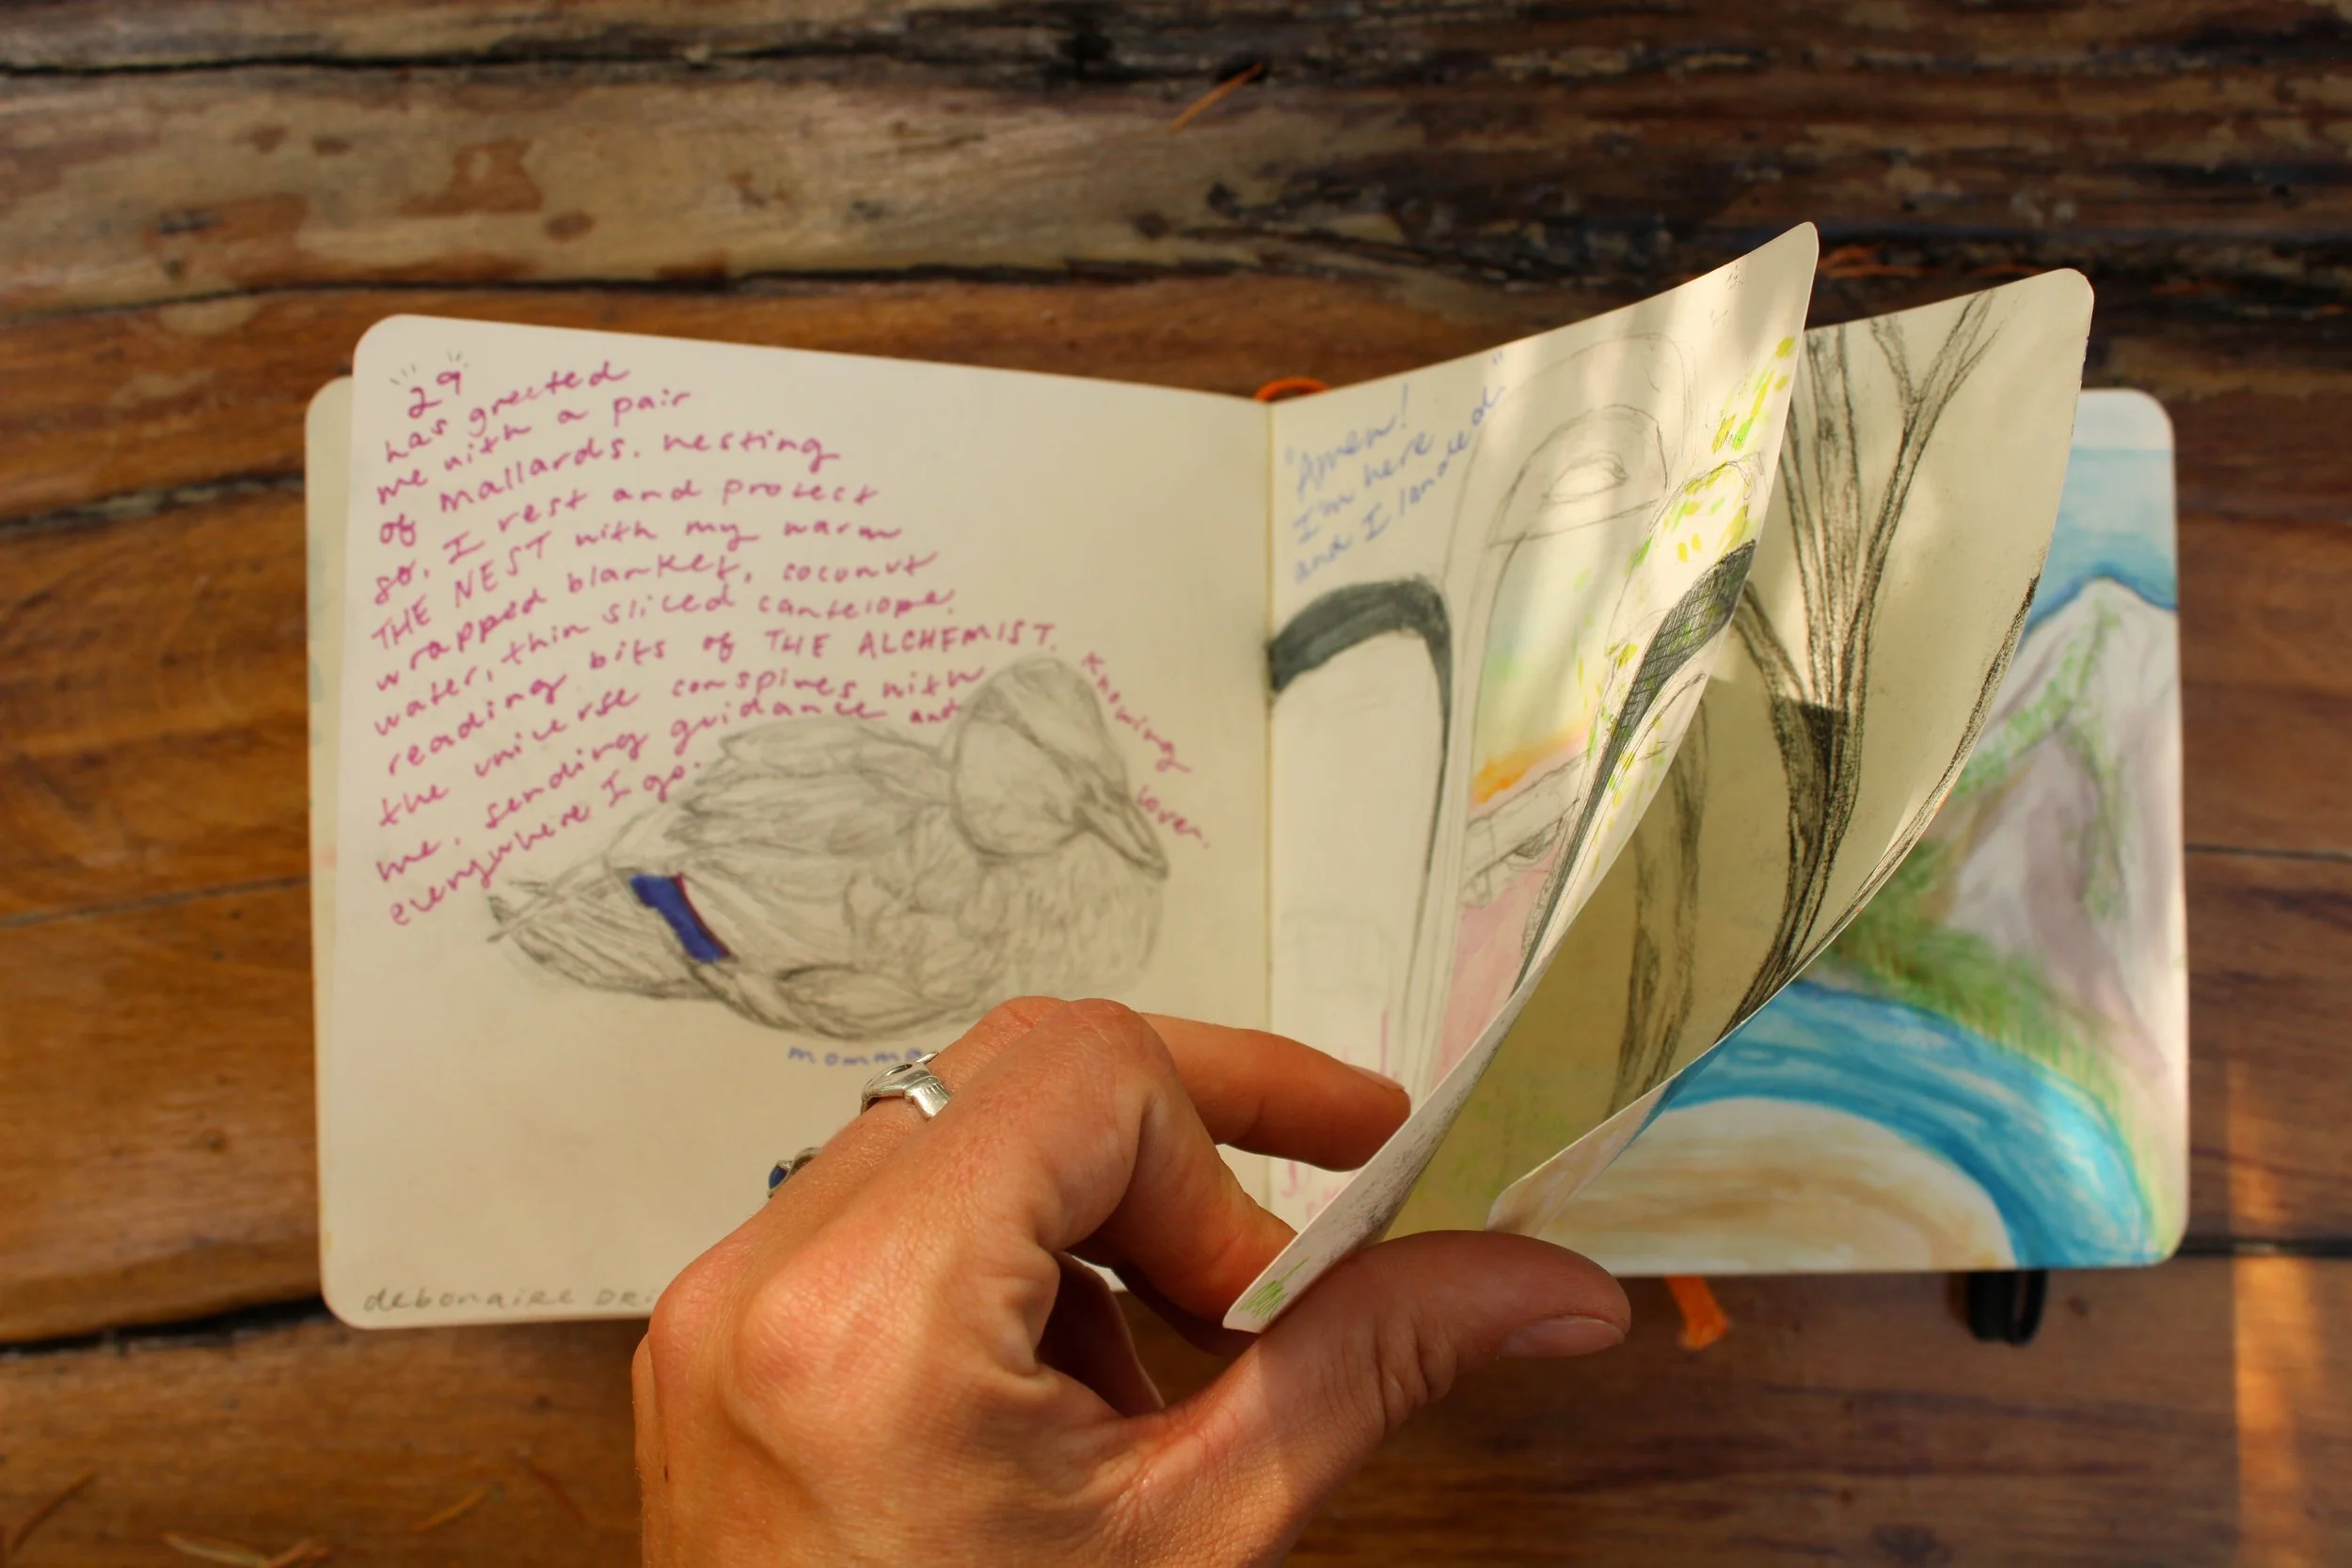 29
has greeted
me with a pair
of mallards. nesting
so, I rest and protect
THE NEST with my warm
wrapped blanket, coconut
water, thin sliced cantelope.
reading bits of THE ALCHEMIST. Knowing
the universe conspires with
me. sending guidance and lover.
everywhere I go.
momma
debonaire
"Amen!
I'm here
and I landed"